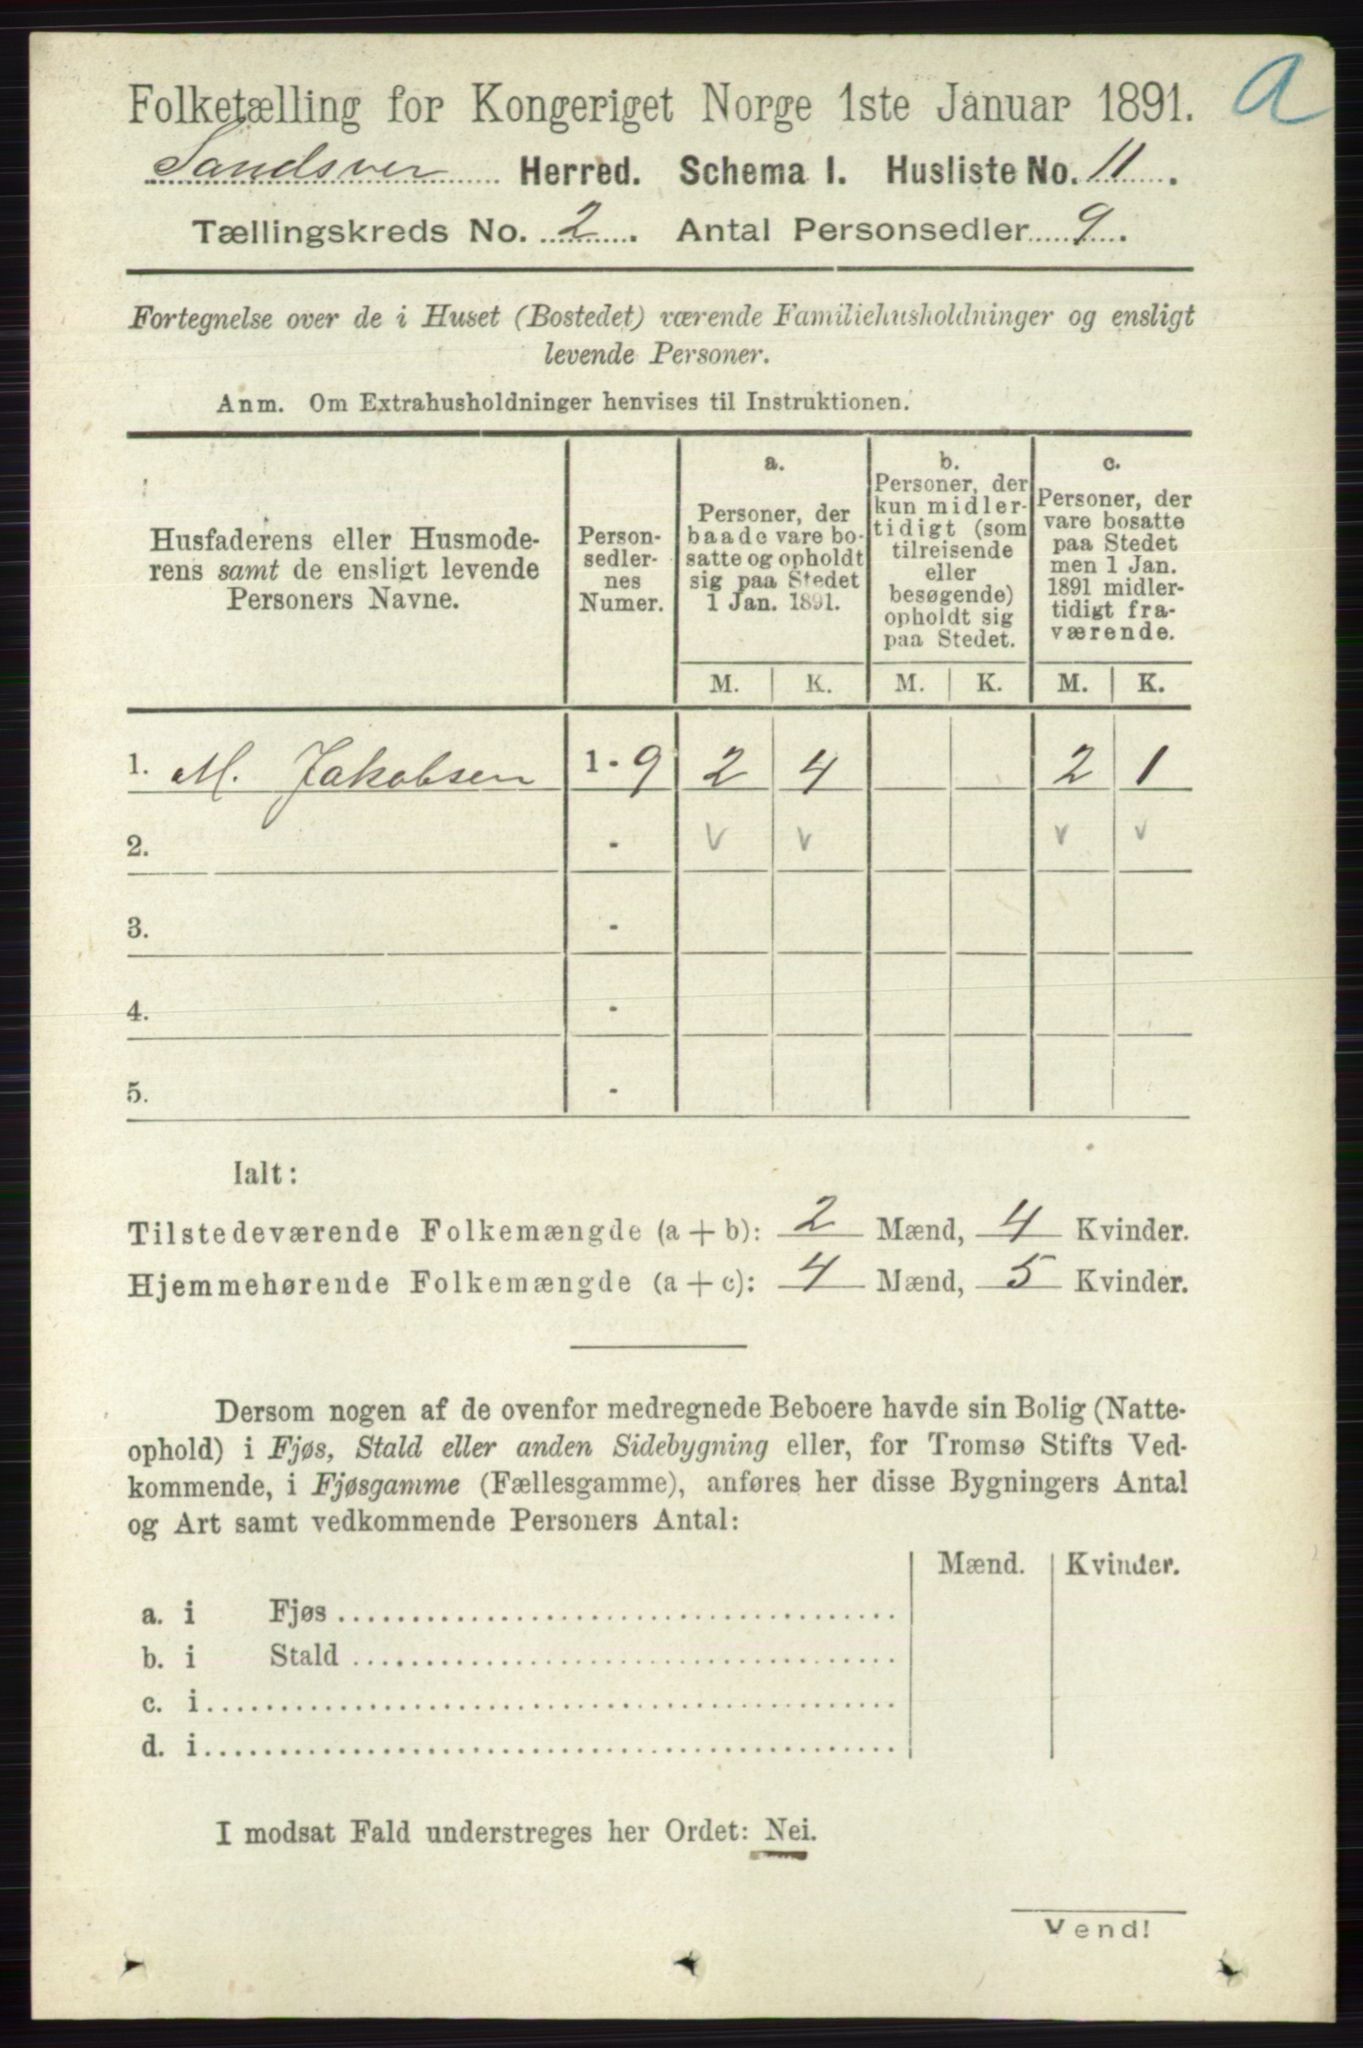 a
Folketælling for Kongeriget Norge 1ste Januar 1891.
Sandsver Herred. Schema I. Husliste No. 11.
Tællingskreds No. 2. Antal Personsedler 9.
Fortegnelse over de i Huset (Bostedet) værende Familiehusholdninger og ensligt
levende Personer.
Anm. Om Extrahusholdninger henvises til Instruktionen.
Husfaderens eller Husmode-
rens samt de ensligt levende
Personers Navne.
Person-
sedler-
nes
Numer.
a.
Personer, der
baade vare bo-
satte og opholdt
sig paa Stedet
1 Jan. 1891.
b.
Personer, der
kun midler-
tidigt (som
tilreisende
eller
besøgende)
opholdt sig
paa Stedet.
c.
Personer, der
vare bosatte
paa Stedet
men 1 Jan.
1891 midler-
tidigt fra-
værende.
M. K. M. K. M. K.
1. M. Jakobsen 1 - 9 2 4 2 1
2. - v v v v
3. -
4. -
5. -
Ialt:
Tilstedeværende Folkemængde (a + b): 2 Mænd, 4 Kvinder.
Hjemmehørende Folkemængde (a + c): 4 Mænd, 5 Kvinder.
Dersom nogen af de ovenfor medregnede Beboere havde sin Bolig (Natte-
ophold) i Fjøs, Stald eller anden Sidebygning eller, for Tromsø Stifts Ved-
kommende, i Fjøsgamme (Fællesgamme), anføres her disse Bygningers Antal
og Art samt vedkommende Personers Antal:
Mænd. Kvinder.
a. i Fjøs
b. i Stald
c. i
d. i
I modsat Fald understreges her Ordet: Nei.
Vend!